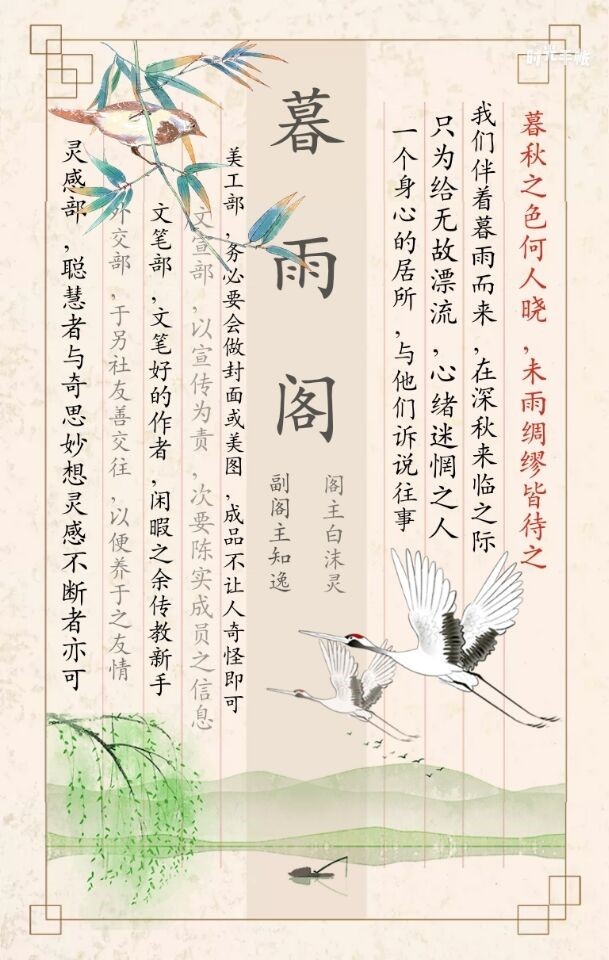 时光手帐
暮秋之色何人晓,未雨绸缪皆待之
我们伴着暮雨而来,在深秋来临之际
只为给无故漂流,心绪迷惘之人
一个身心的居所,与他们诉说往事
暮雨阁
阁主白沫灵
副阁主知逸
美工部,务必要会做封面或美图,成品不让人奇怪即可
文宣部,以宣传为责,次要陈实成员之信息
文笔部,文笔好的作者,闲暇之余传教新手
外交部,于另社友善交往,以便养于之友情
灵感部,聪慧者与奇思妙想灵感不断者亦可